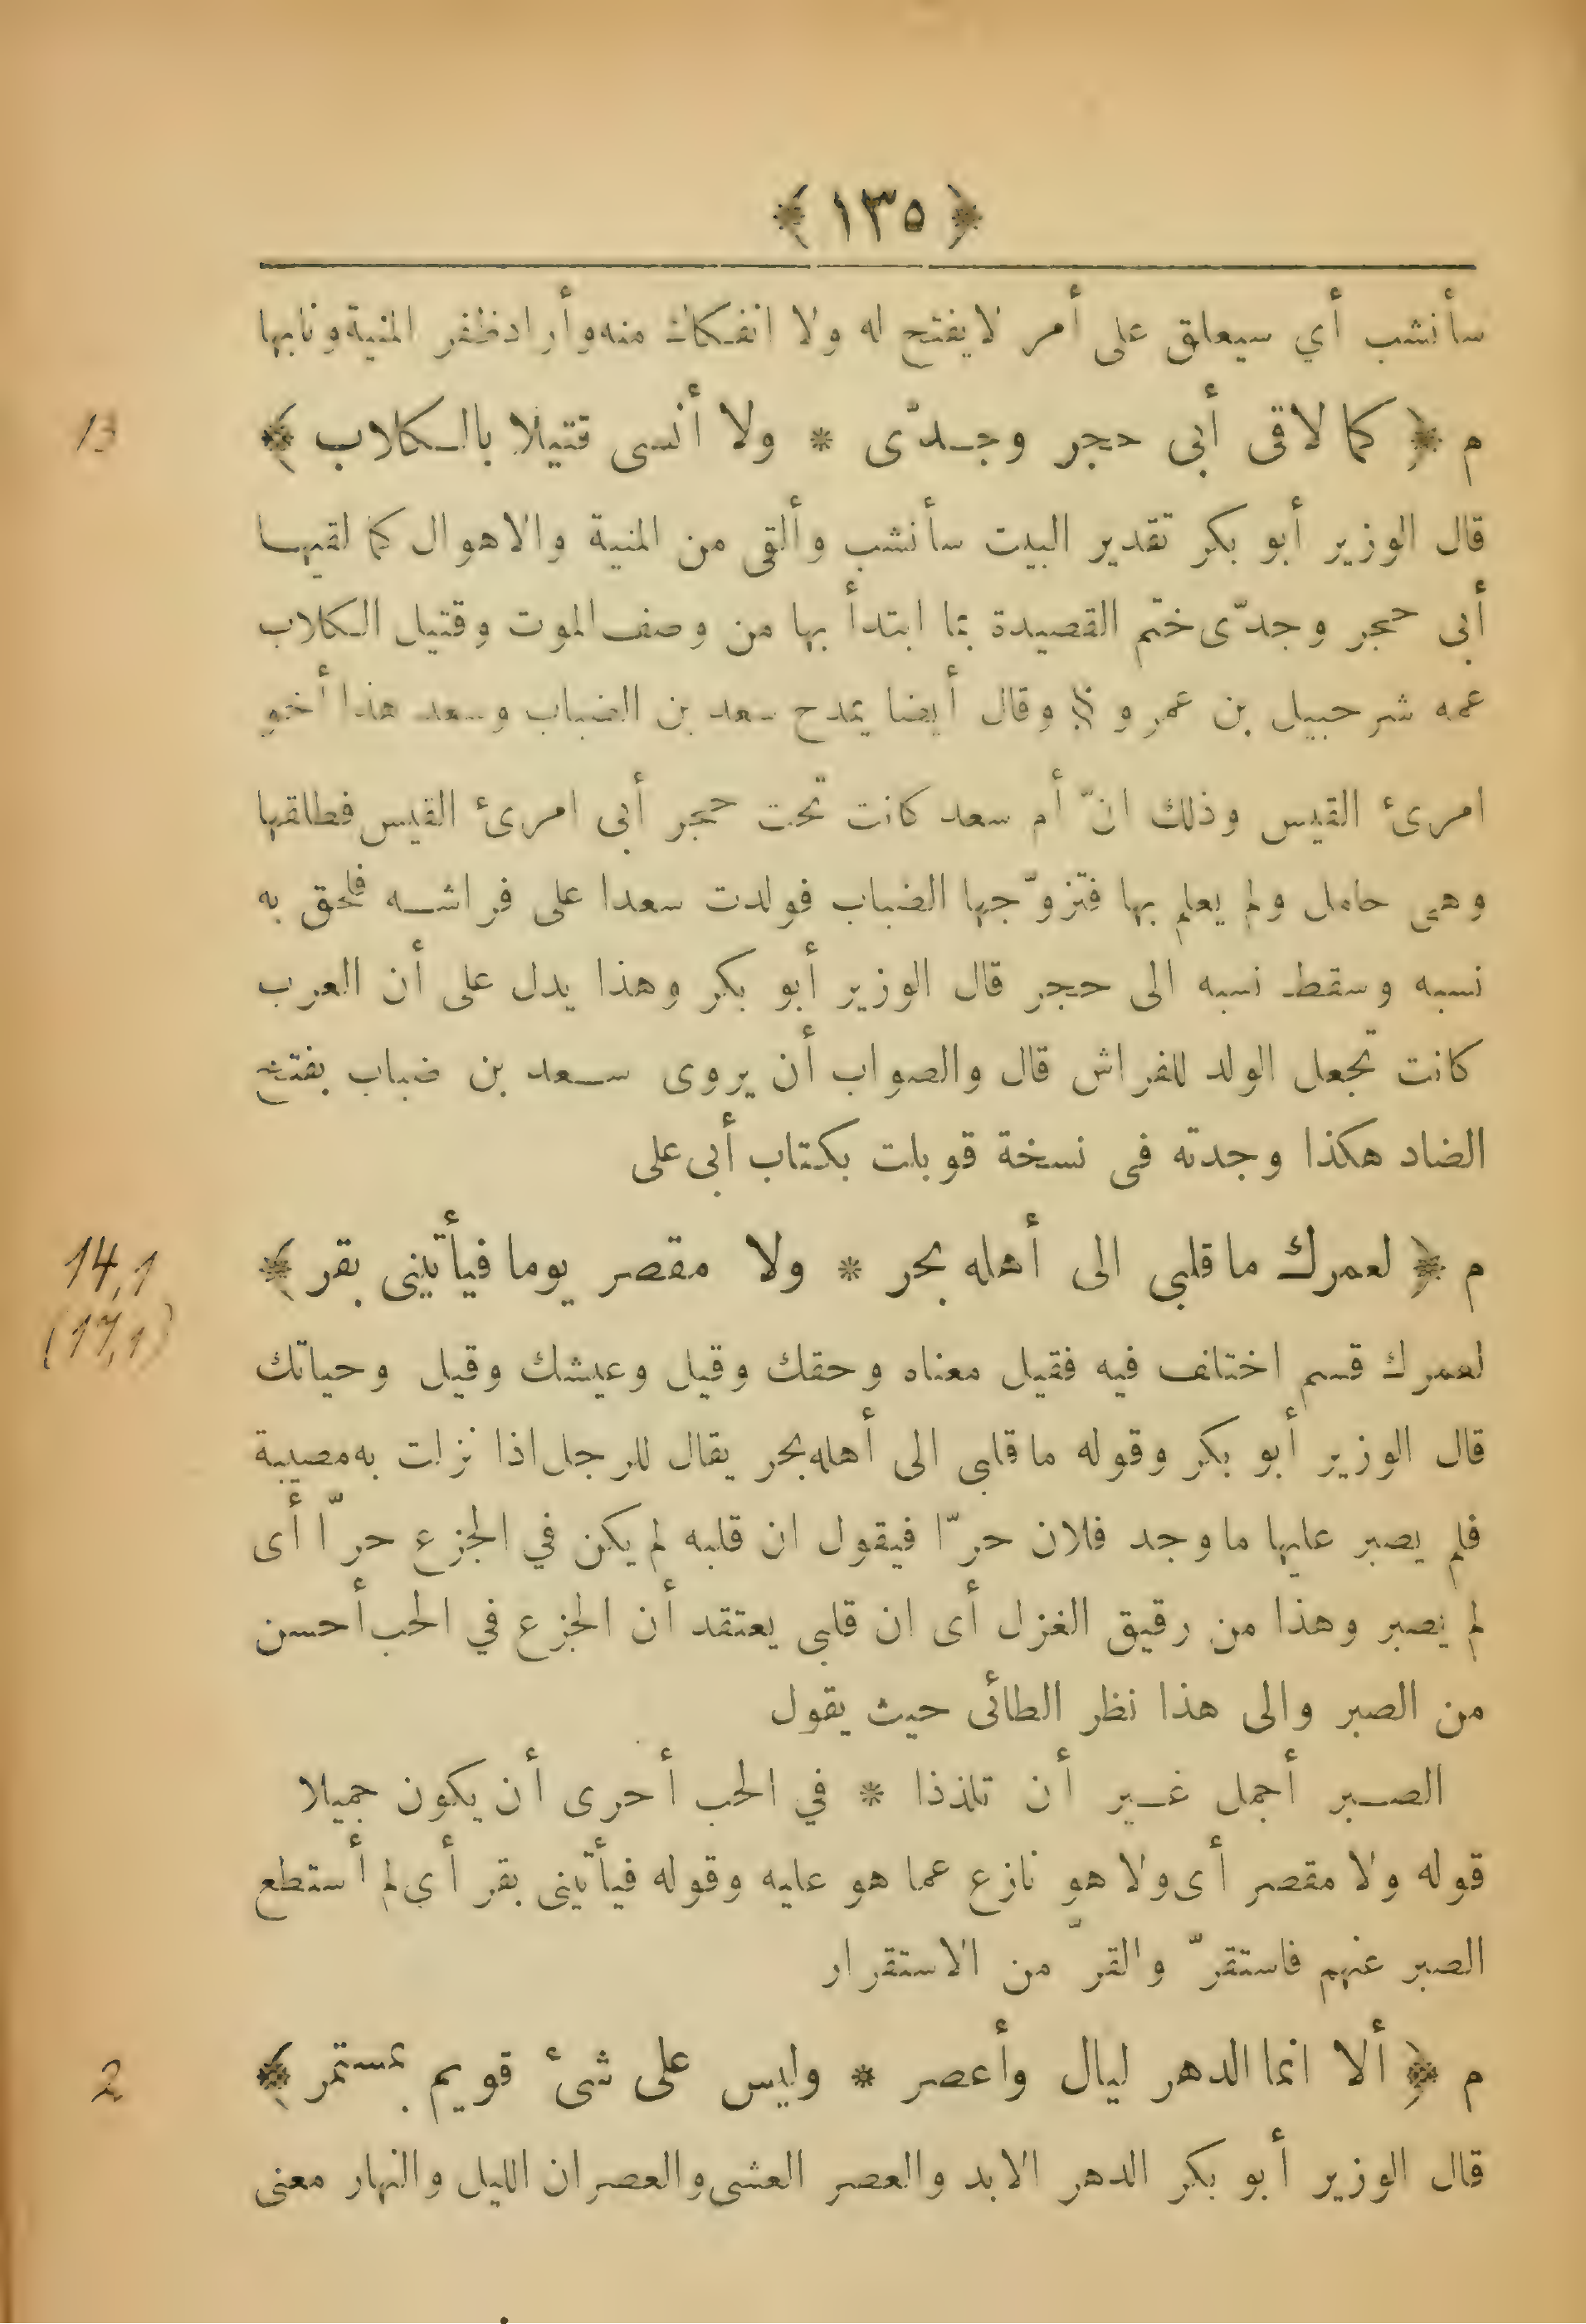 ﴿ ١٣٥ ﴾
سأنشب أي سيعلق على أمر لا يفتح له ولا انفكاك منه وأراد ظفر المنية ونابها
13
م ﴿ كما لاقى أبى حجر وجدّى * ولا أنسى قتيلا بالكلاب ﴾
قال الوزير أبو بكر تقدير البيت سأنشب وألقى من المنية والاهوال كما لقيها
أبى حجر وجدّى ختم القصيدة بما ابتدأ بها من وصف الموت وقتيل الكلاب
عمه شرحبيل بن عمرو § وقال أيضا يمدح سعد بن الضباب وسعد هذا أخو
امرئ القيس وذلك انّ أم سعد كانت تحت حجر أبى امرئ القيس فطلقها
وهي حامل ولم يعلم بها فتزوّجها الضباب فولدت سعدا على فراشه فلحق به
نسبه وسقط نسبه الى حجر قال الوزير أبو بكر وهذا يدل على أن العرب
كانت تجعل الولد للفراش قال والصواب أن يروى سعد بن ضباب بفتح
الضاد هكذا وجدته فى نسخة قوبلت بكتاب أبى على
14,1
م ﴿ لعمرك ما قلبى الى أهله بحر * ولا مقصر يوما فيأتينى بقر ﴾
(17,1)
لعمرك قسم اختلف فيه فقيل معناه وحقك وقيل وعيشك وقيل وحياتك
قال الوزير أبو بكر وقوله ما قلبى الى أهله بحر يقال للرجل اذا نزلت به مصيبة
فلم يصبر عليها ما وجد فلان حرّا فيقول ان قلبه لم يكن في الجزع حرّا أى
لم يصبر وهذا من رقيق الغزل أى ان قلبى يعتقد أن الجزع في الحب أحسن
من الصبر والى هذا نظر الطائى حيث يقول
الصبر أجمل غير أن تلذذا * في الحب أحرى أن يكون جميلا
قوله ولا مقصر أى ولا هو نازع عما هو عليه وقوله فيأتينى بقر أي لم أستطع
الصبر عنهم فاستقرّ والقرّ من الاستقرار
2
م ﴿ ألا انما الدهر ليال وأعصر * وليس على شئ قويم بمستمر ﴾
قال الوزير أبو بكر الدهر الابد والعصر العشى والعصران الليل والنهار معنى